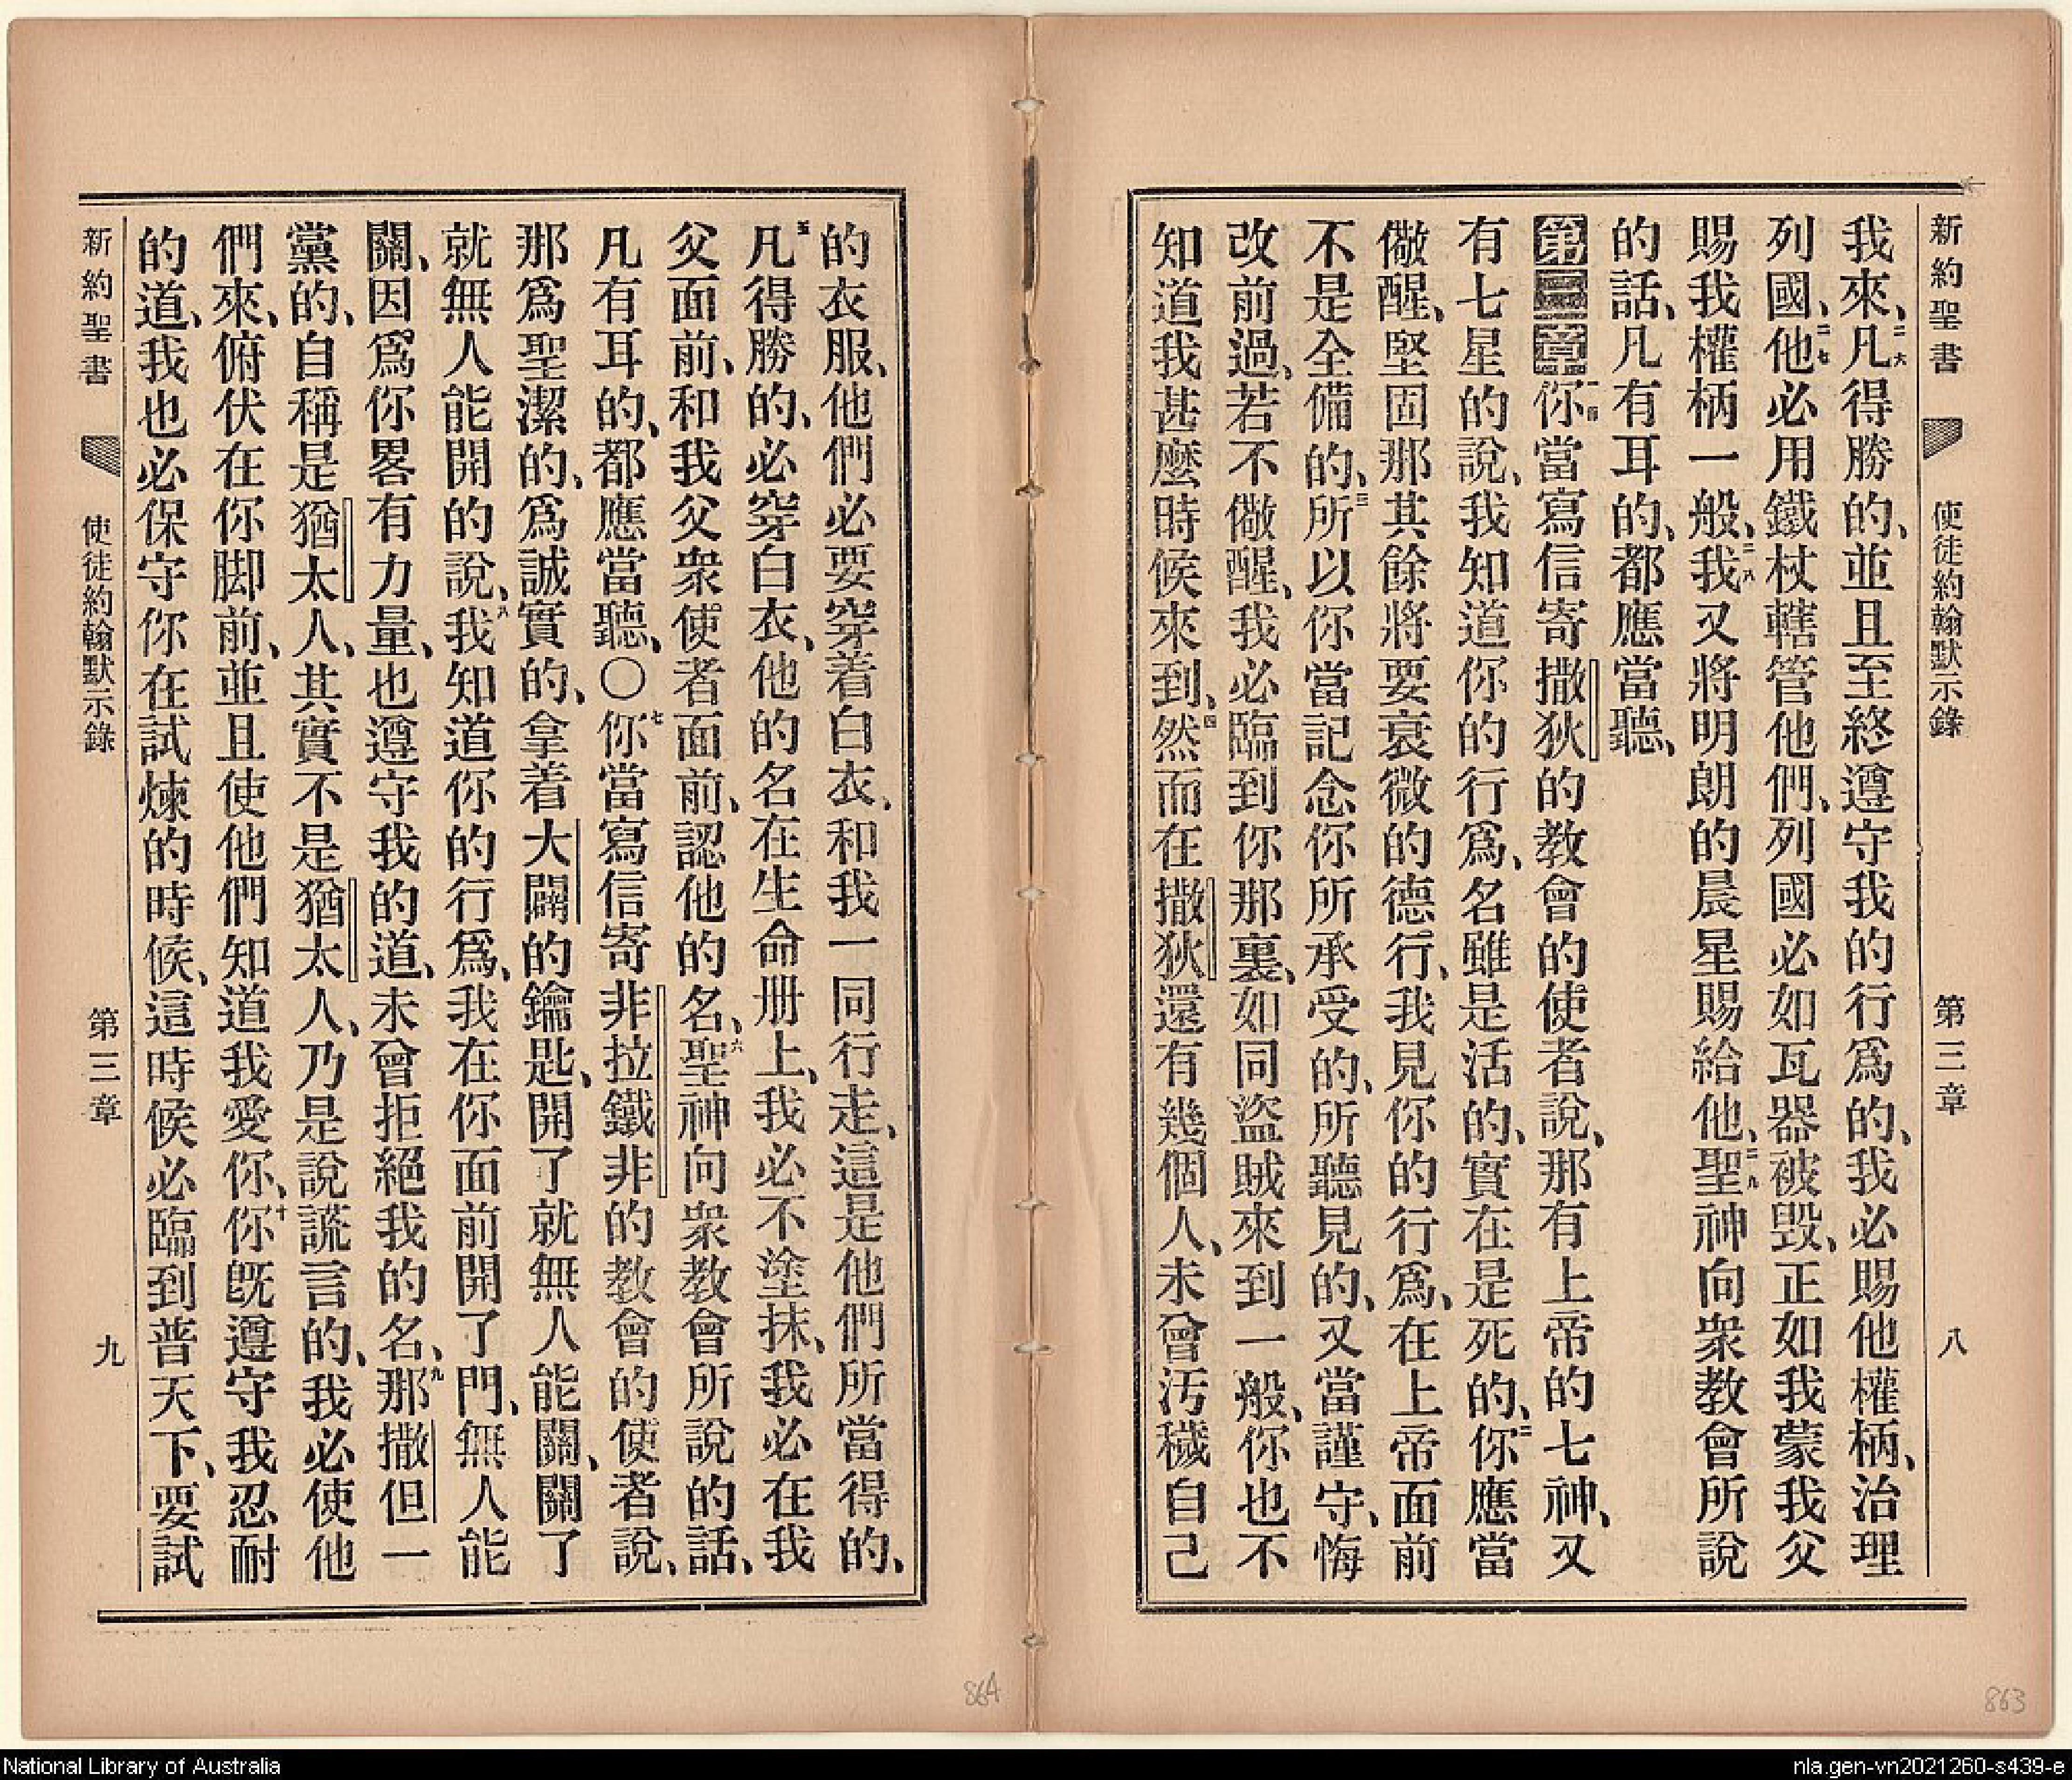 新約聖書 使徒約翰默示錄 第三章 八
我來、二六凡得勝的、並且至終遵守我的行爲的、我必賜他權柄、治理
列國、二七他必用鐵杖轄管他們、列國必如瓦器被毀、正如我蒙我父
賜我權柄一般、二八我又將明朗的晨星賜給他、二九聖神向衆教會所說
的話、凡有耳的、都應當聽、
第三章一節你當寫信寄撒狄的教會的使者說、那有上帝的七神、又
有七星的說、我知道你的行爲、名雖是活的、實在是死的、二你應當
儆醒、堅固那其餘將要衰微的德行、我見你的行爲、在上帝面前
不是全備的、三所以你當記念你所承受的、所聽見的、又當謹守、悔
改前過、若不儆醒、我必臨到你那裏、如同盜賊來到一般、你也不
知道我甚麽時候來到、四然而在撒狄還有幾個人、未曾汚穢自己
的衣服、他們必要穿着白衣、和我一同行走、這是他們所當得的、
五凡得勝的、必穿白衣、他的名在生命册上、我必不塗抹、我必在我
父面前、和我父衆使者面前、認他的名、六聖神向衆教會所說的話、
凡有耳的、都應當聽、〇七你當寫信寄非拉鐵非的教會的使者說、
那爲聖潔的、爲誠實的、拿着大闢的鑰匙、開了就無人能關、關了
就無人能開的說、八我知道你的行爲、我在你面前開了門、無人能
關、因爲你畧有力量、也遵守我的道、未曾拒絕我的名、九那撒但一
黨的、自稱是猶太人、其實不是猶太人、乃是說謊言的、我必使他
們來、俯伏在你脚前、並且使他們知道我愛你、十你旣遵守我忍耐
的道、我也必保守你在試煉的時候、這時候必臨到普天下、要試
新約聖書 使徒約翰默示錄 第三章 九
864
863
National Library of Australia
nla.gen-vn2021260-s439-e